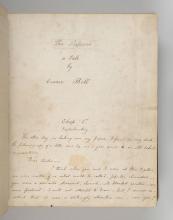 The Professor
a Tale
by
Currer Bell
Chap. 1st
Introductory
The other day, in looking over my papers, I found in my desk
the following copy of a letter sent by me a year since to an old school
acquaintance.
"Dear Charles,
I think when you and I were at Eton together,
we were neither of us what could be called popular characters;
you were a sarcastic, observant, shrewd, cold-blooded creature;
my own portrait I will not attempt to draw, but I cannot
recollect that it was a strikingly attractive one